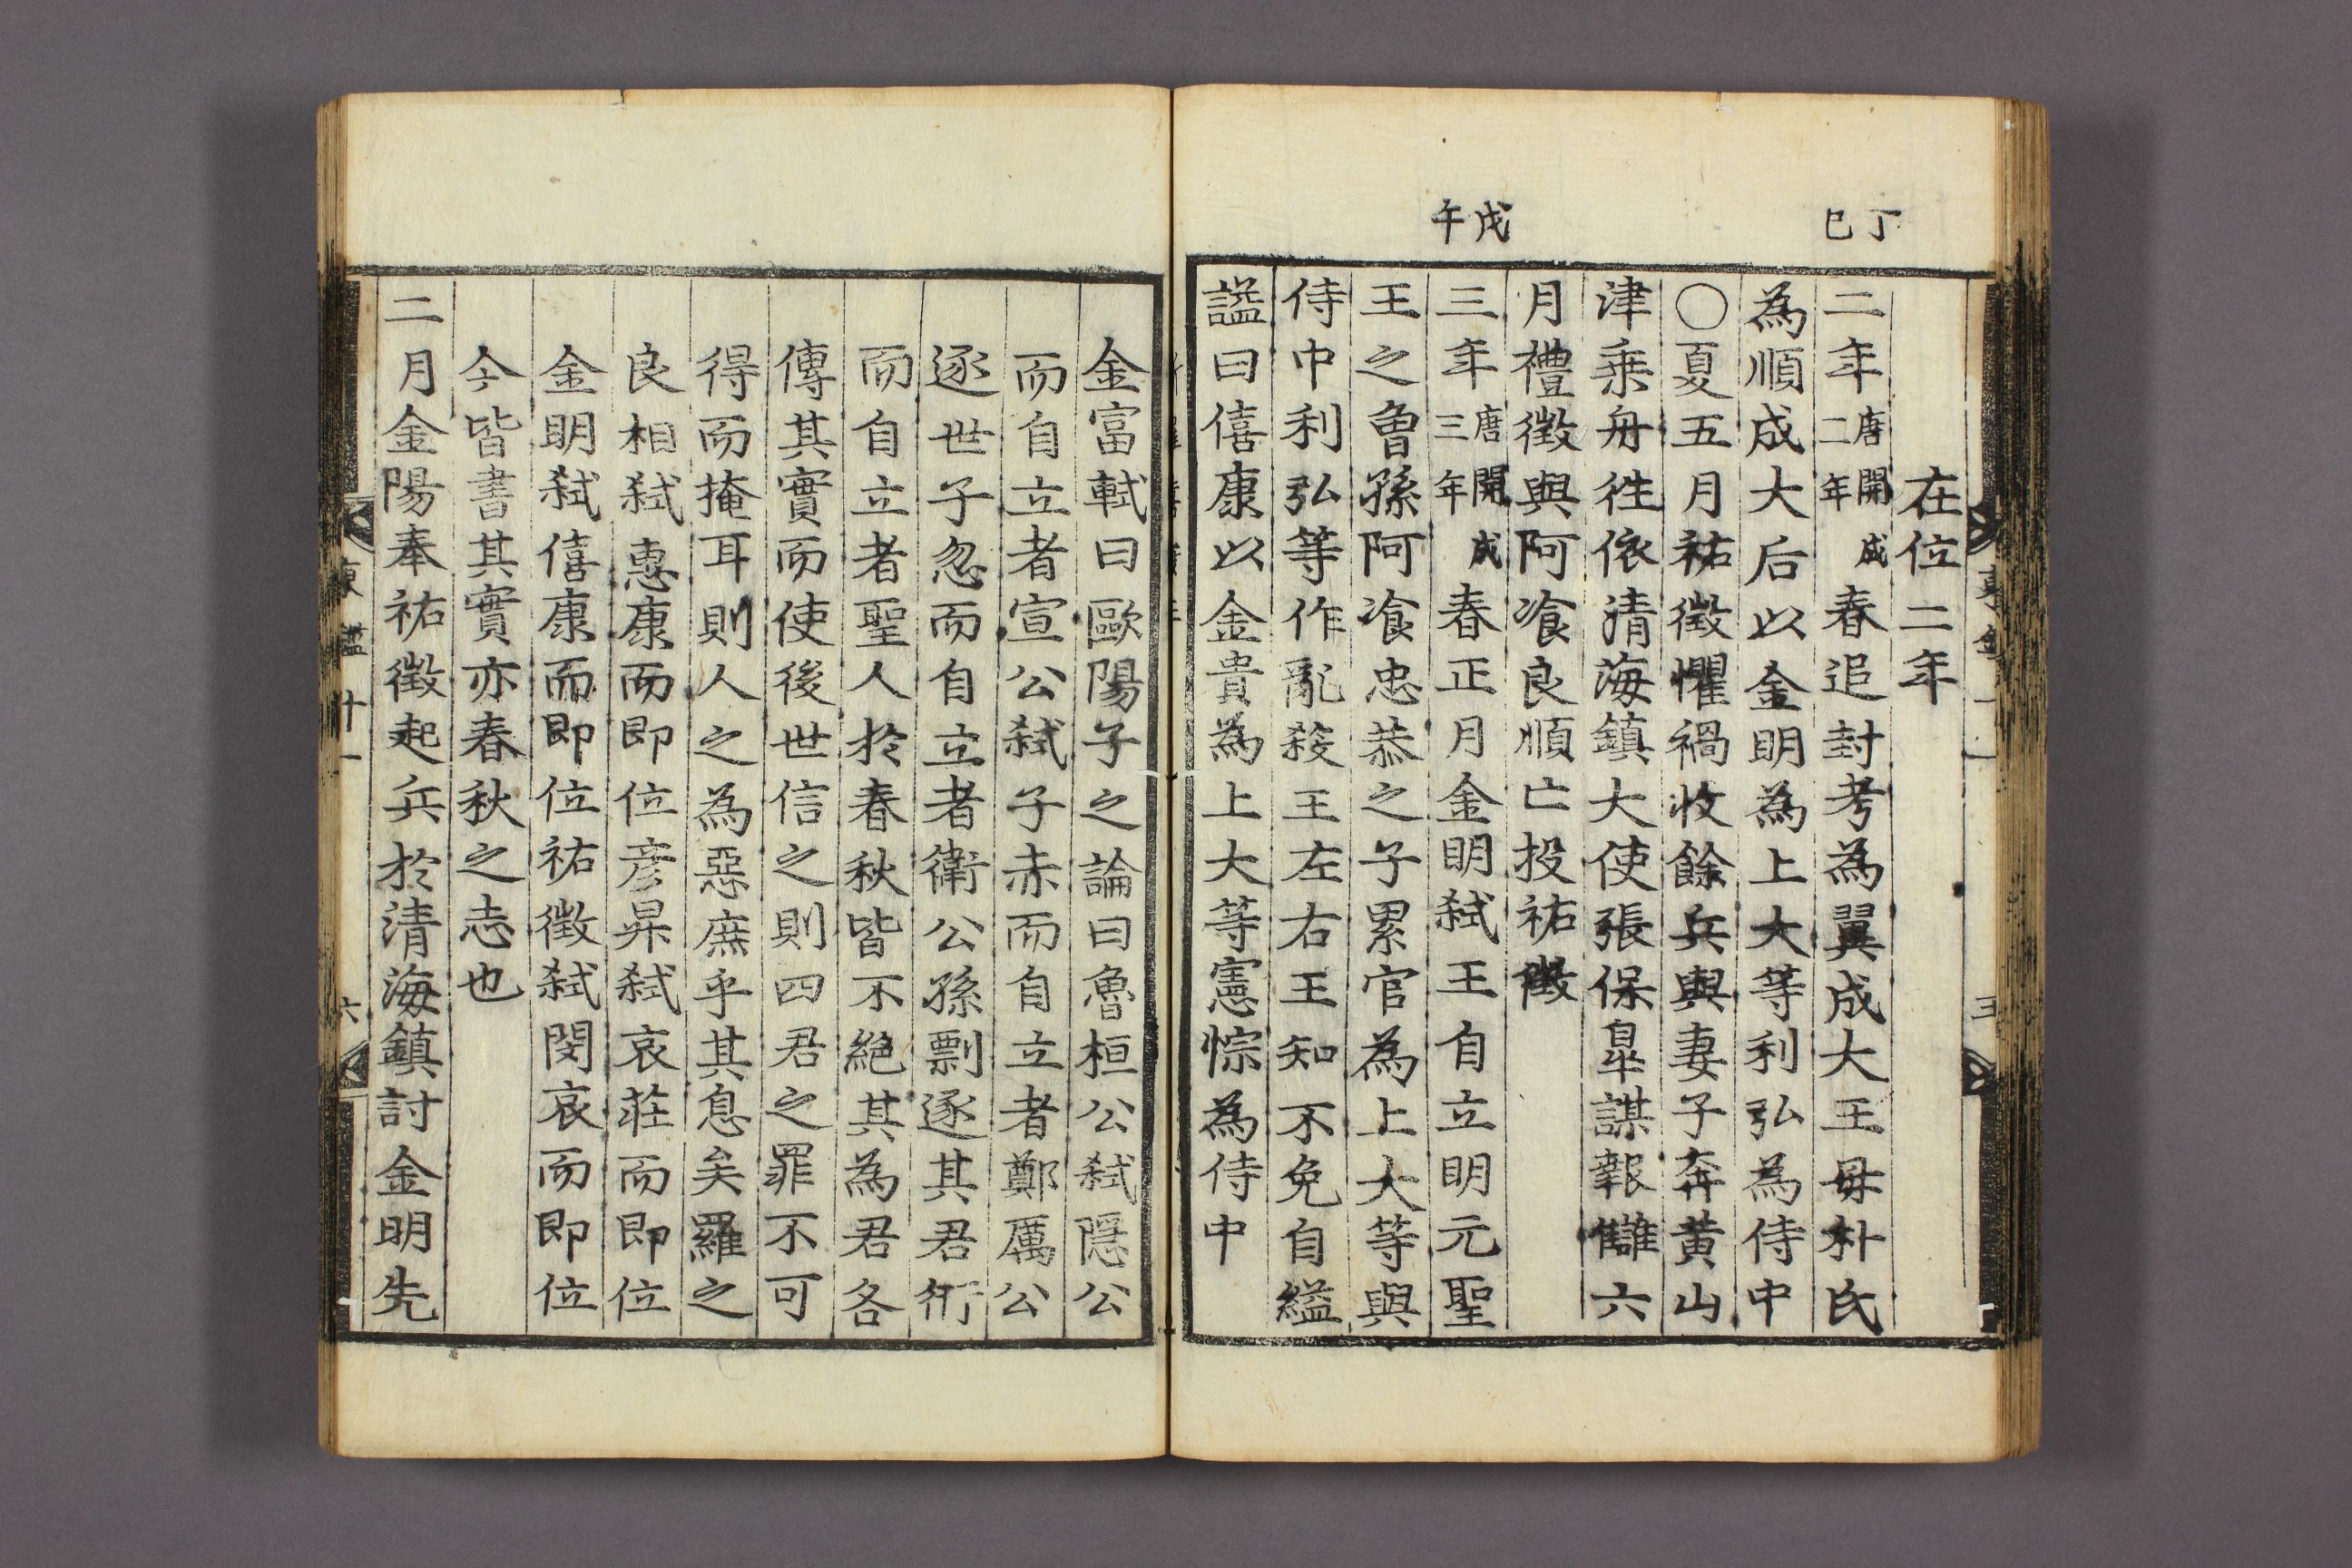 丁巳
戊午
在位二年
二年唐開成二年春追封考為翼成大王毋朴氏
為順成大后以金明為上大等利弘為侍中
○夏五月祐徵懼禍收餘兵與妻子奔黄山
津乗舟徃依清海鎮大使張保臯謀報讎六
月禮徵與阿飡良順亡投祐徵
三年唐開成三年春正月金明弑王自立明元聖
王之曾孫阿飡忠恭之子累官為上大等與
侍中利弘等作亂殺王左右王知不免自縊
謚曰僖康以金貴為上大等憲悰為侍中
金富軾曰歐陽子之論曰魯桓公弑隱公
而自立者宣公弑子赤而自立者鄭厲公
逐世子忽而自立者衛公孫剽逐其君衎
而自立者聖人於春秋皆不絶其為君各
傳其實而使後世信之則四君之罪不可
得而掩耳則人之為惡庶乎其息矣羅之
良相弑惠康而即位彦昇弑哀莊而即位
金明弑僖康而即位祐徵弑閔哀而即位
今皆書其實亦春秋之志也
二月金陽奉祐徵起兵於清海鎮討金明先
東鑑十一
六